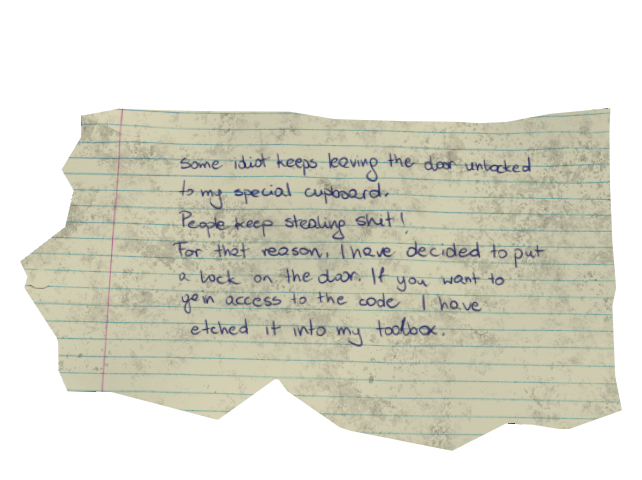 some idiot keeps leaving the door unlocked
to my special cupboard.
People keep stealing shit!
For that reason, I have decided to put
a lock on the door. If you want to
gain access to the code I have
etched it into my toolbox.